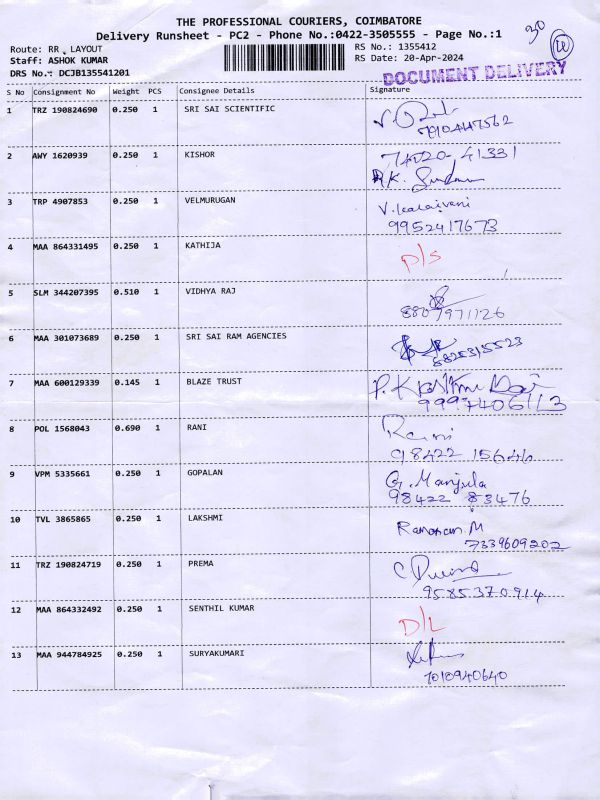 THE PROFESSIONAL COURIERS, COIMBATORE
Delivery Runsheet - PC2 - Phone No.:0422-3505555 - Page No.:1
30
Route: RR LAYOUT
RS No.: 1355412
Staff: ASHOK KUMAR
RS Date: 20-Apr-2024
DRS No.: DCJB135541201
DOCUMENT DELIVERY
S No Consignment No Weight PCS Consignee Details Signature
1 TRZ 190824690 0.250 1 SRI SAI SCIENTIFIC
7910447562
2 AWY 1620939 0.250 1 KISHOR 74020 41331
R.K.
3 TRP 4907853 0.250 1 VELMURUGAN V. kalaivani
9952417673
4 MAA 864331495 0.250 1 KATHIJA D/S
5 SLM 344207395 0.510 1 VIDHYA RAJ
8807971126
6 MAA 301073689 0.250 1 SRI SAI RAM AGENCIES
8825315523
7 MAA 600129339 0.145 1 BLAZE TRUST
9997406113
8 POL 1568043 0.690 1 RANI Rani
98422 15646
9 VPM 5335661 0.250 1 GOPALAN G. Manjula
98422 83476
10 TVL 3865865 0.250 1 LAKSHMI
7339609202
11 TRZ 190824719 0.250 1 PREMA
9585370914
12 MAA 864332492 0.250 1 SENTHIL KUMAR D/L
13 MAA 944784925 0.250 1 SURYAKUMARI
7010940640